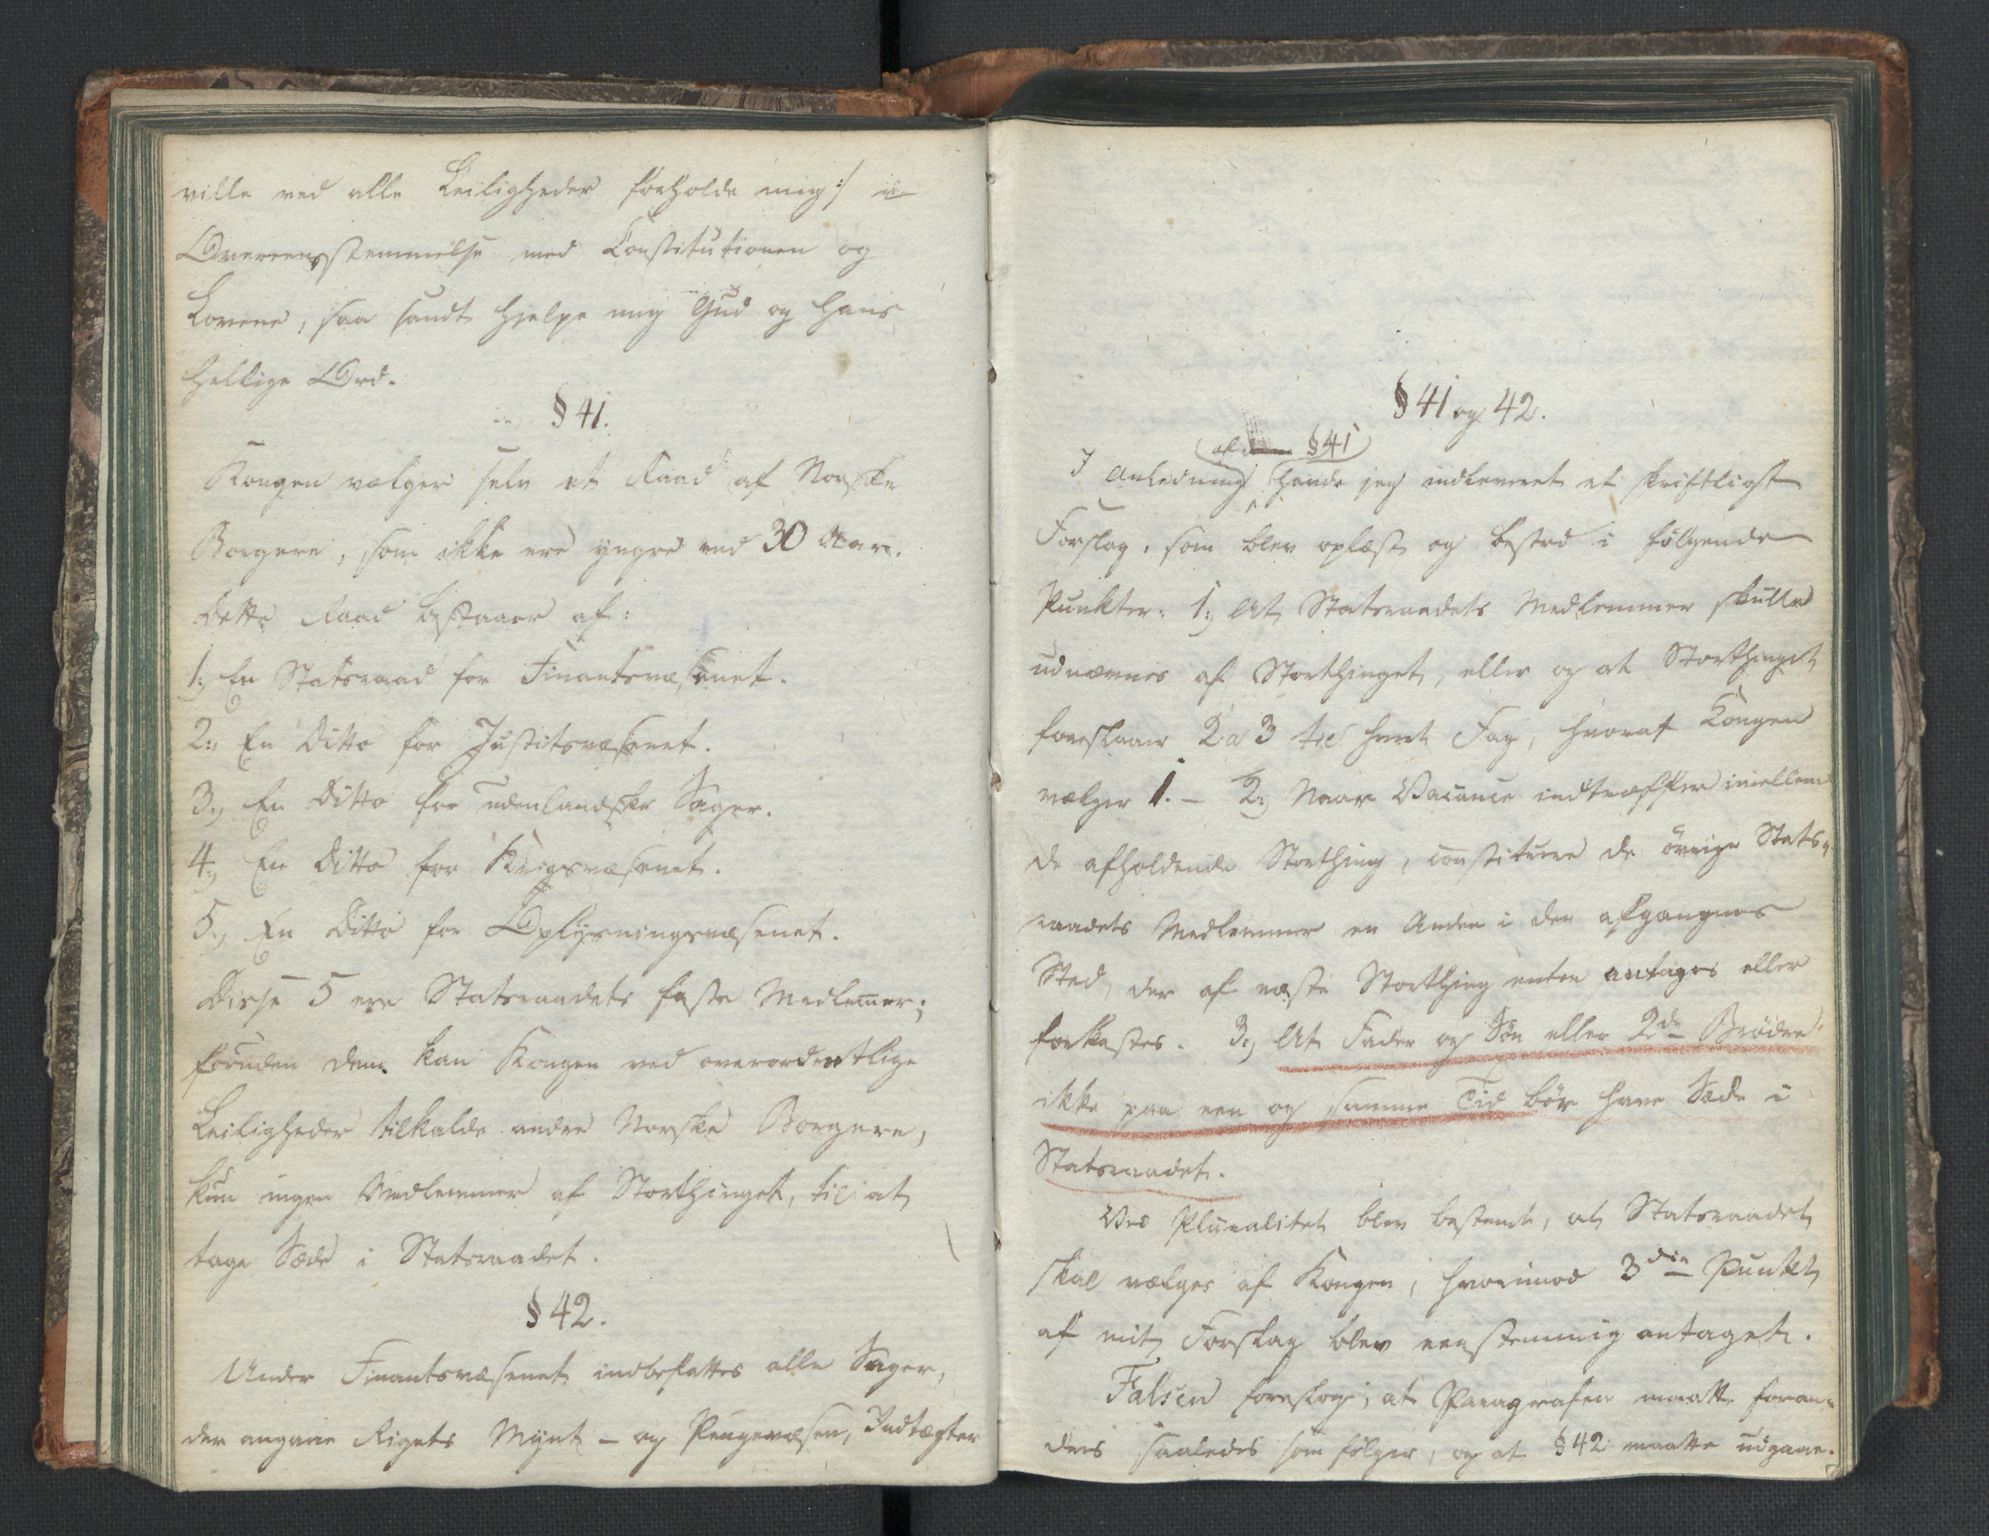 ville ved alle Leiligheder forholde mig :/ i
Overeensstemmelse med Constitutionen og
Lovene, saa sandt hjelpe mig Gud og hans
hellige Ord.
§ 41.
Kongen vælger selv et Raad af Norske
Borgere, som ikke ere yngre end 30 Aar.
Dette Raad bestaaer af:
1:, En Statsraad for Finantsvæsenet.
2:, En Ditto for Justitsvæsenet.
3:, En Ditto for udenlandske Sager.
4:, En Ditto for Krigsvæsenet.
5:, En Ditto for Oplysningsvæsenet.
Disse 5 ere Statsraadets faste Medlemer;
foruden dem kan Kongen ved overordentlige
Leiligheder tilkalde andre Norske Borgere,
kun ingen Medlemmer af Storthinget, til at
tage Sæde i Statsraadet.
§ 42.
Under Finantsvæsenet indbefattes alle Sager,
der angaae Rigets Mynt- og Pengevæsen, Indtægter
§ 41 og 42.
af § 41
I Anledning havde jeg indleveret et skriftligt
Forslag, som blev oplæst og bestod i følgende
Punkter: 1:, At Statsraadets Medlemmer skulle
udnævnes af Storthinget, eller og at Storthinget
foreslaaer 2 a 3 til hvert Fag, hvoraf Kongen
vælger 1. - 2:, Naar Vacance indtræffer imellem
de afholdende Storthing, constituere de øvrige Stats-
raadets Medlemmer en Anden i den afgangnes
Sted, der af næste Storthing enten antages eller
forkastes. 3:, At Fader og Søn eller 2de Brødre
ikke paa een og samme Tid bør have Sæde i
Statsraadet.
Ved Pluralitet blev bestemt, at Statsraadet
skal vælges af Kongen, hvorimod 3die Punkt
af mit Forslag blev eenstemmig antaget.
Falsen foreslog, at Paragrafen maatte foran-
dres saaledes som følger, og at § 42 maatte udgaae.